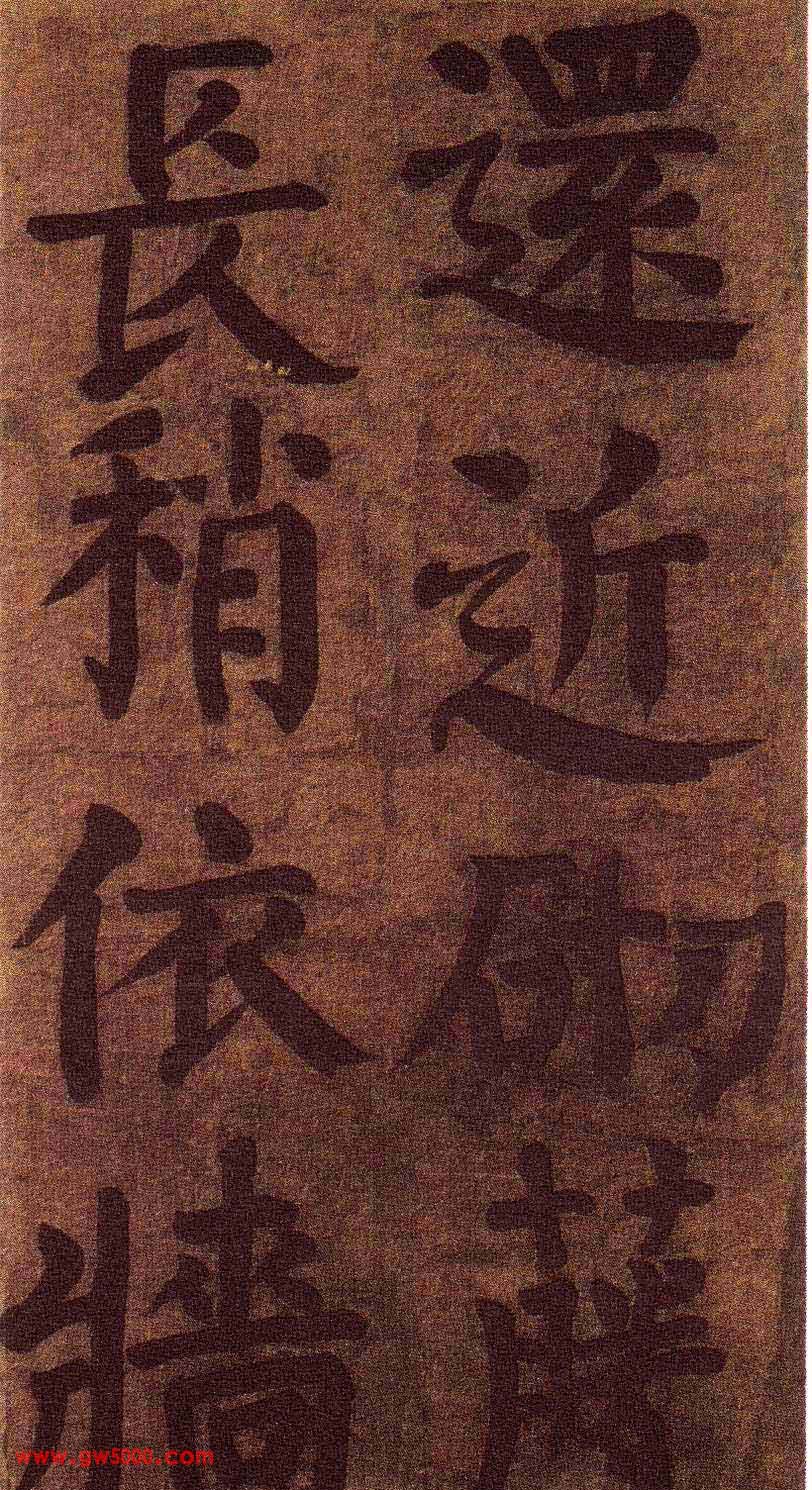 還近砌藤
長稍依牆
www.gw5000.com